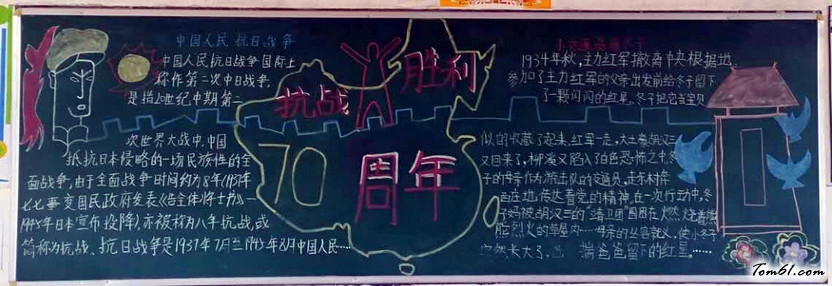 中国人民抗日战争
中国人民抗日战争国际上
称作第二次中日战争
是指20世纪中期第二
次世界大战中,中国
抵抗日本侵略的一场民族性的全
面战争,由于全面战争时间约为8年(1937年
七七事变国民政府发表《告全体将士书》—
1945年日本宣布投降),亦被称为八年抗战,或
简称为抗战、抗日战争是1937年7月至1945年8月中国人民……
抗战
胜利
70
周年
1934年秋,主力红军撤离中央根据地,
参加了主力红军的父亲出发前给冬子留下
了一颗闪闪的红星,冬子把它当宝贝
似的收藏了起来,红军一走,大土豪胡汉三
又回来了,柳溪又陷入了白色恐怖之中,冬
子的母亲作为游击队的交通员,走东村奔
西庄地传达着党的精神,在一次行动中,冬
子妈被胡汉三的"靖卫团"围困在燃烧着
熊烈火的草屋内……母亲的
突然长大了,
揣爸爸留下的红星……
Tom61.com